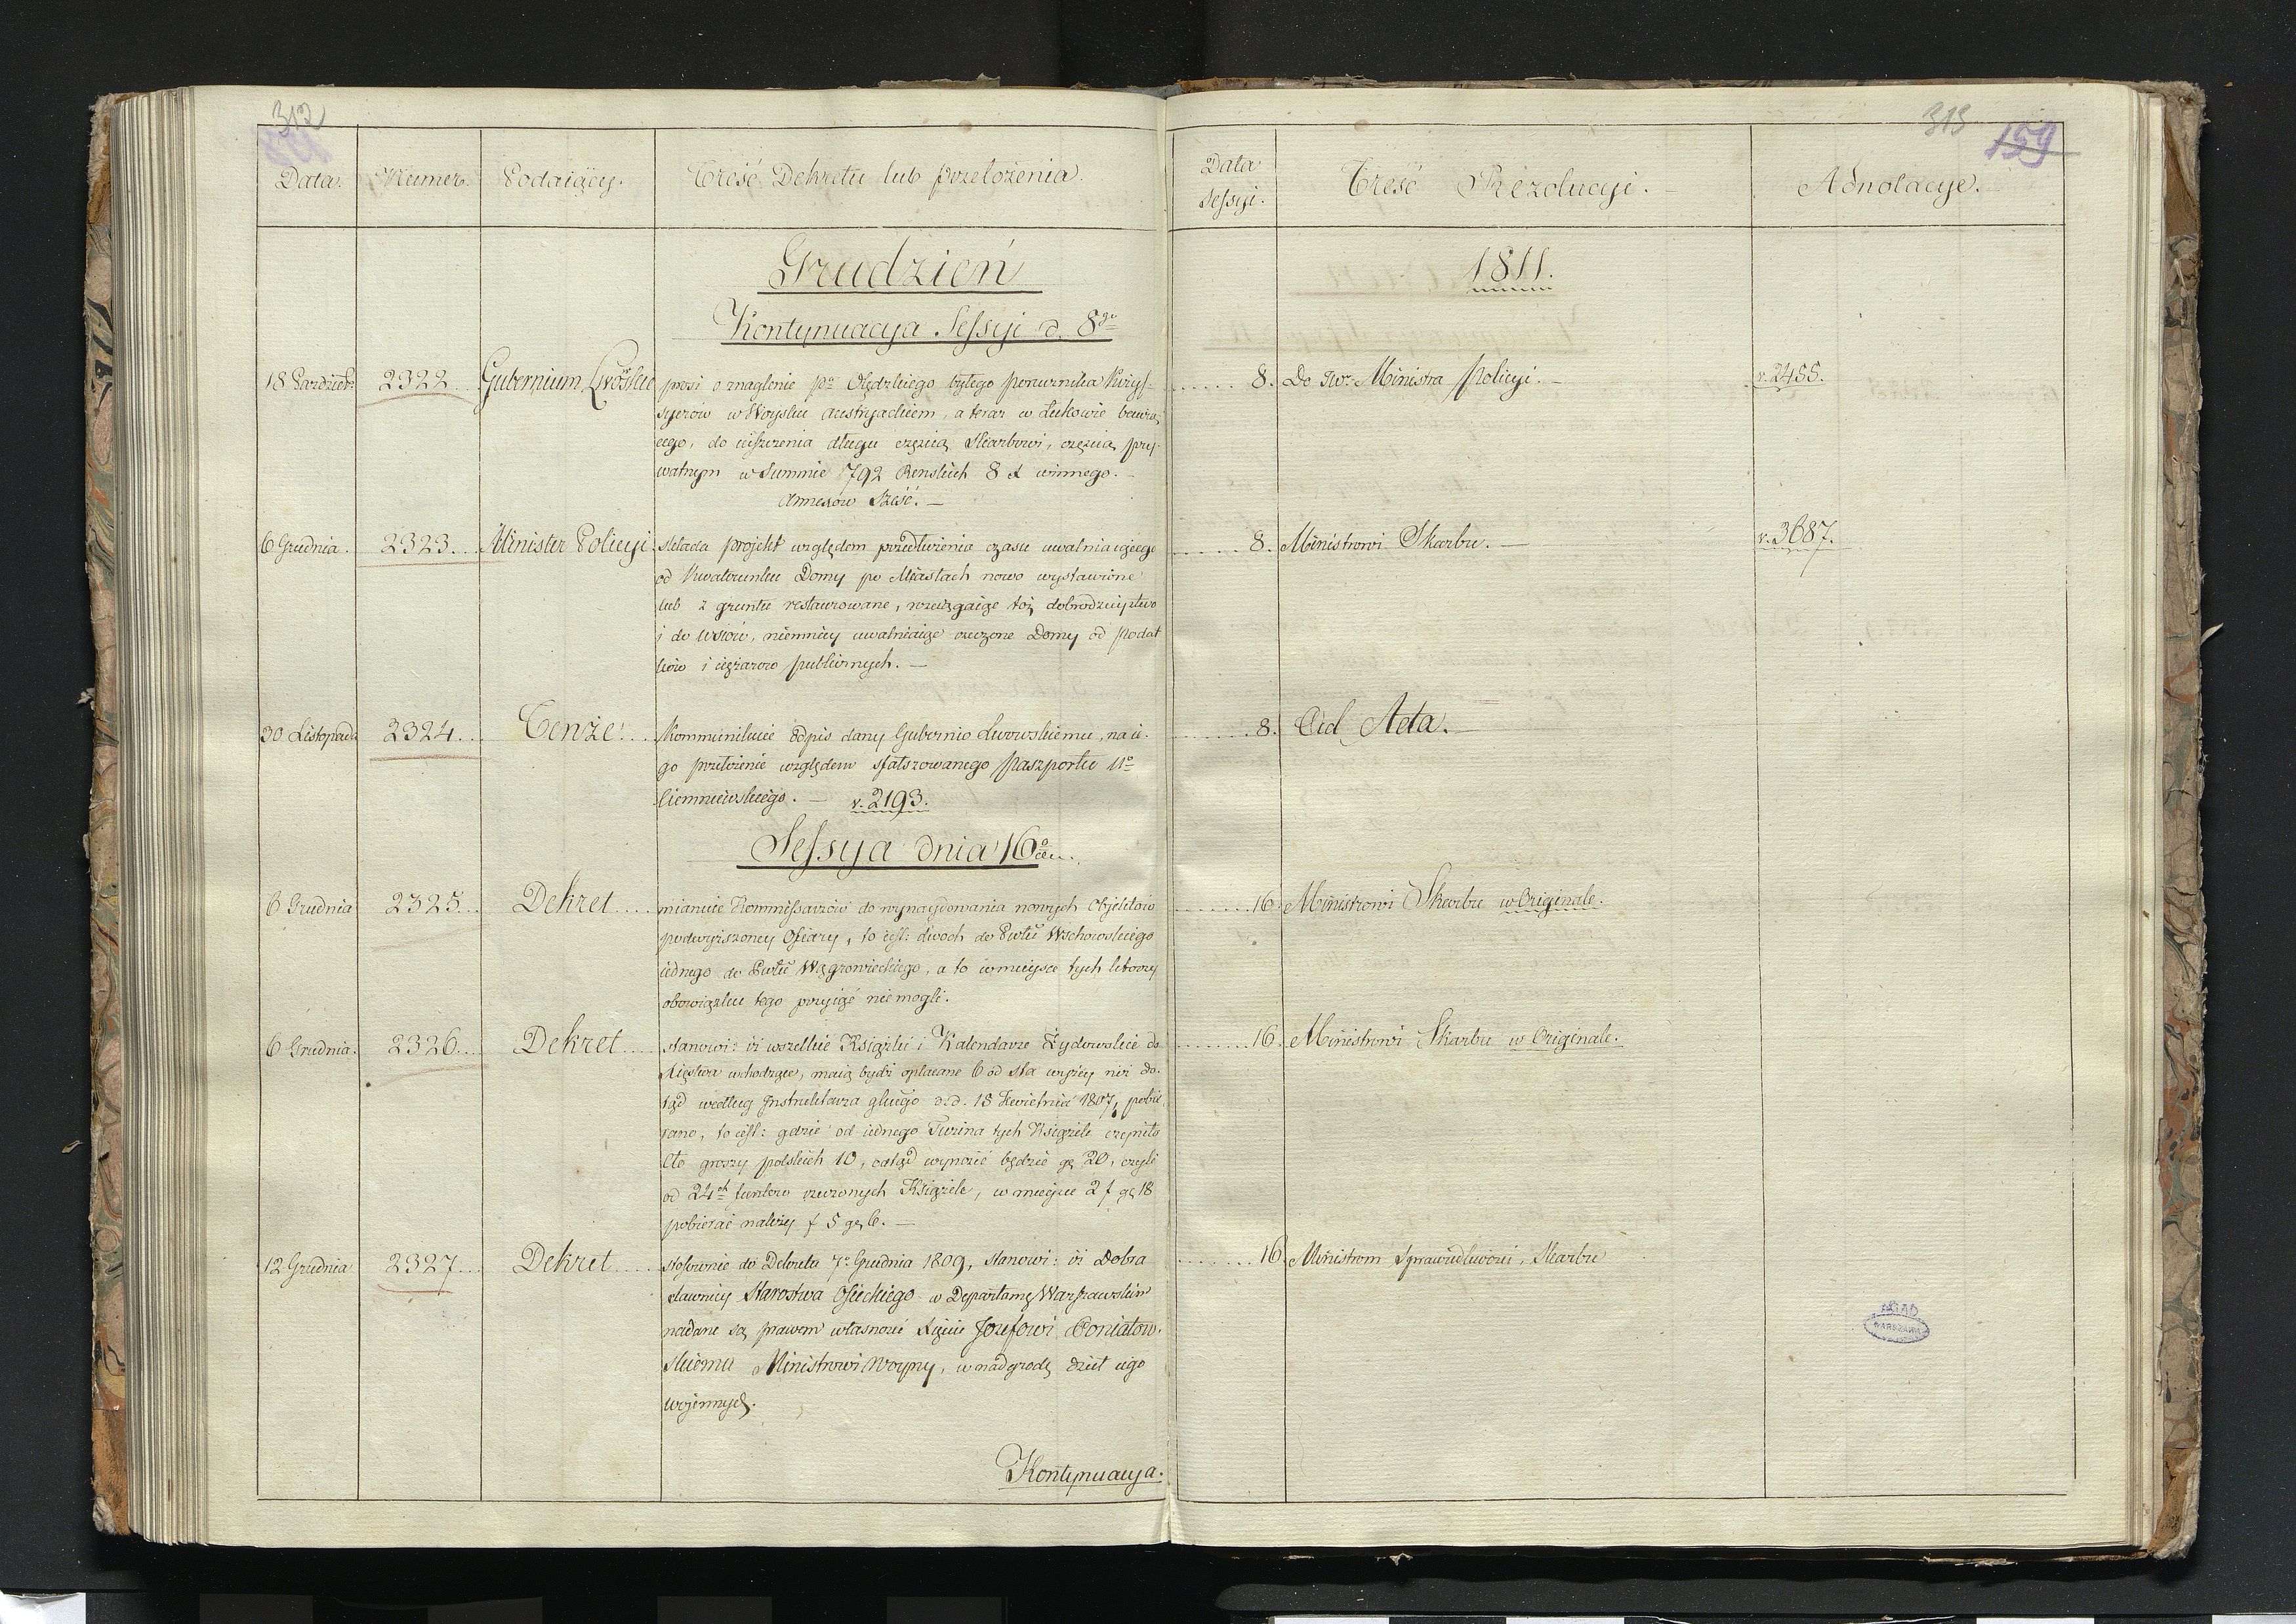 312
Data.
Numer.
Podaiący.
Treść Dekretu lub przełożenia.
Grudzień
Kontynuacya Sessyi d. 8go
18 Paźdźier.
2322
Gubernium Lwowskie
prosi o znaglenie po Olędzkiego byłego porucznika Kirys-
syerów w Woysku austryackiem, a teraz w Łukowie bawią-
cego, do uiszczenia długu częścią Skarbowi, częścią pry-
watnym w Summie 792 Renskich 8 x winnego. -
Annexów Sześć. -
6 Grudnia.
2323
Minister Policyi
składa projekt względem przedłużenia czasu uwalniaiącego
od Kwaterunku Domy po Miastach nowo wystawione
lub z gruntu restaurowane, rozciągaiąc toż dobrodzieystwo
i do wsiów, niemniey uwalniaiąc rzeczone Domy od podat
ków i ciężarów publicznych. -
30 Listopada
2324
Tenże
Kommunikuie odpis dany Gubernio Lwowskiemu, na ie-
go przełożenie względem sfałszowanego paszportu Uo
Ciemniewskiego. - v. 2193.
Sessya dnia 16o
6 Grudnia
2325
Dekret
mianuie Kommissarzów do wynaydowania nowych Objektów
podwyższoney Ofiary, to iest: dwoch do Pwtu Wschowskiego
iednego do Pwtu Wągrowieckiego, a to w mieysce tych którzy
obowiązku tego przyiąć nie mogli.
6 Grudnia.
2326
Dekret
stanowi: iż wszelkie Książki i Kalendarze Żydowskie do
Xięstwa wchodzące, maią bydź opłacane 6 od sta wyżey niż do-
tąd według Instruktarza głnego d.d. 18 Kwietnia 1807, pobie-
rano, to iest: gdzie od iednego Tuzina tych Książek czyniło
Cło groszy polskich 10, odtąd wynosić będzie gr 20, czyli
od 24ch funtów rzeczonych Książek, w mieysce 2 f gr 18
pobierać należy f 5 gr 6. -
12 Grudnia
2327
Dekret
stosownie do Dekretu 7o Grudnia 1809, stanowi: iż Dobra
dawniey Starostwa Osieckiego w Departamę Warszawskim
nadane są prawem własności Xięciu Józefowi Poniatow-
skiemu Ministrowi Woyny, w nadgrodę dzieł iego
woiennych.
Kontynuacya.
313
159
Data
Sessyi.
Treść Rezolucyi.
Adnotacye.
1811.
8. Do JWo Ministra Policyi. -
v. 2455.
8. Ministrowi Skarbu. -
v. 3687.
8. Ad Acta. -
16. Ministrowi Skarbu w Originale.
16. Ministrowi Skarbu w Originale.
16. Ministrom Sprawiedliwości, Skarbu
AGAD
WARSZAWA